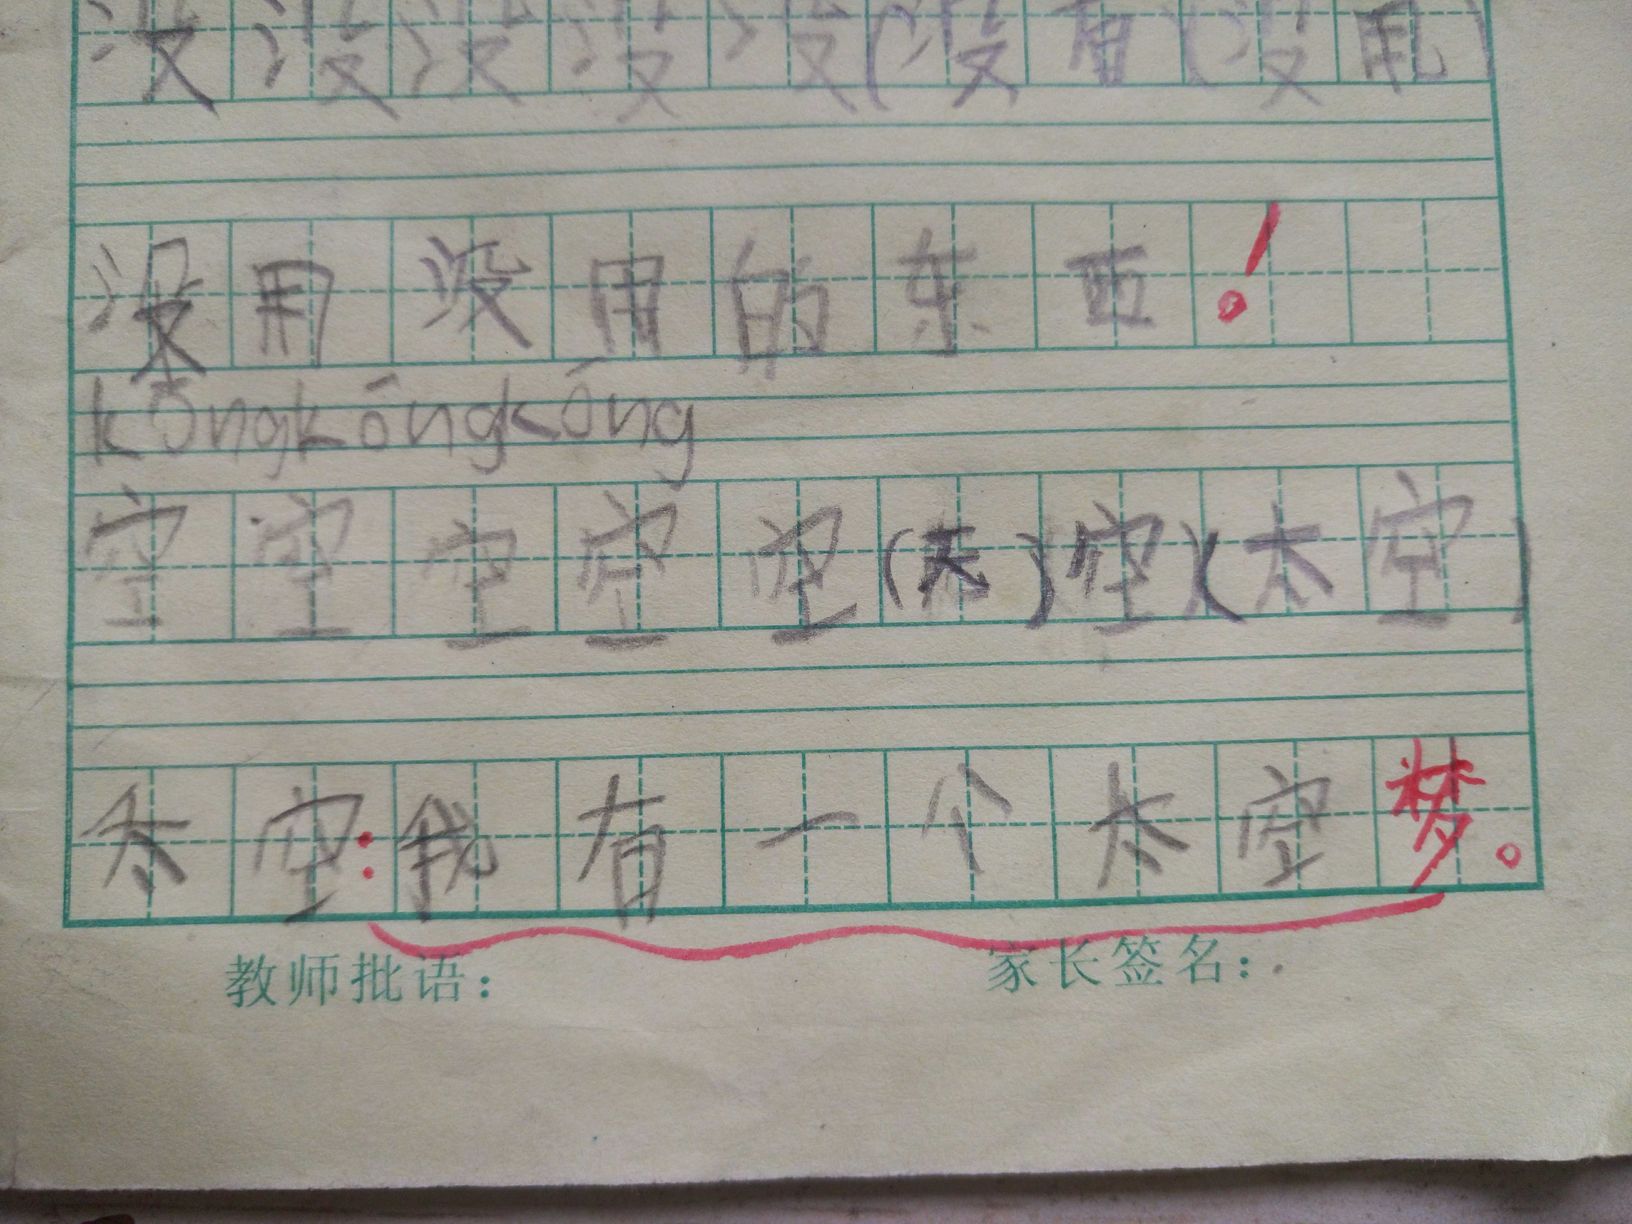 没没没没没(没有)(没用)
没用没用的东西!
kōngkōngkōng
空空空空空(天)空)(太空)
太空:我有一个太空梦。
教师批语: 家长签名: